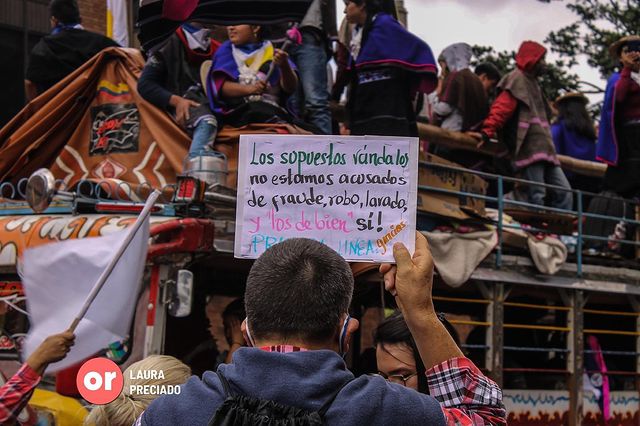 Los supuestos vándalos
no estamos acusados
de fraude, robo, lavado
y "los de bien" sí!
gracias
or
LAURA
PRECIADO